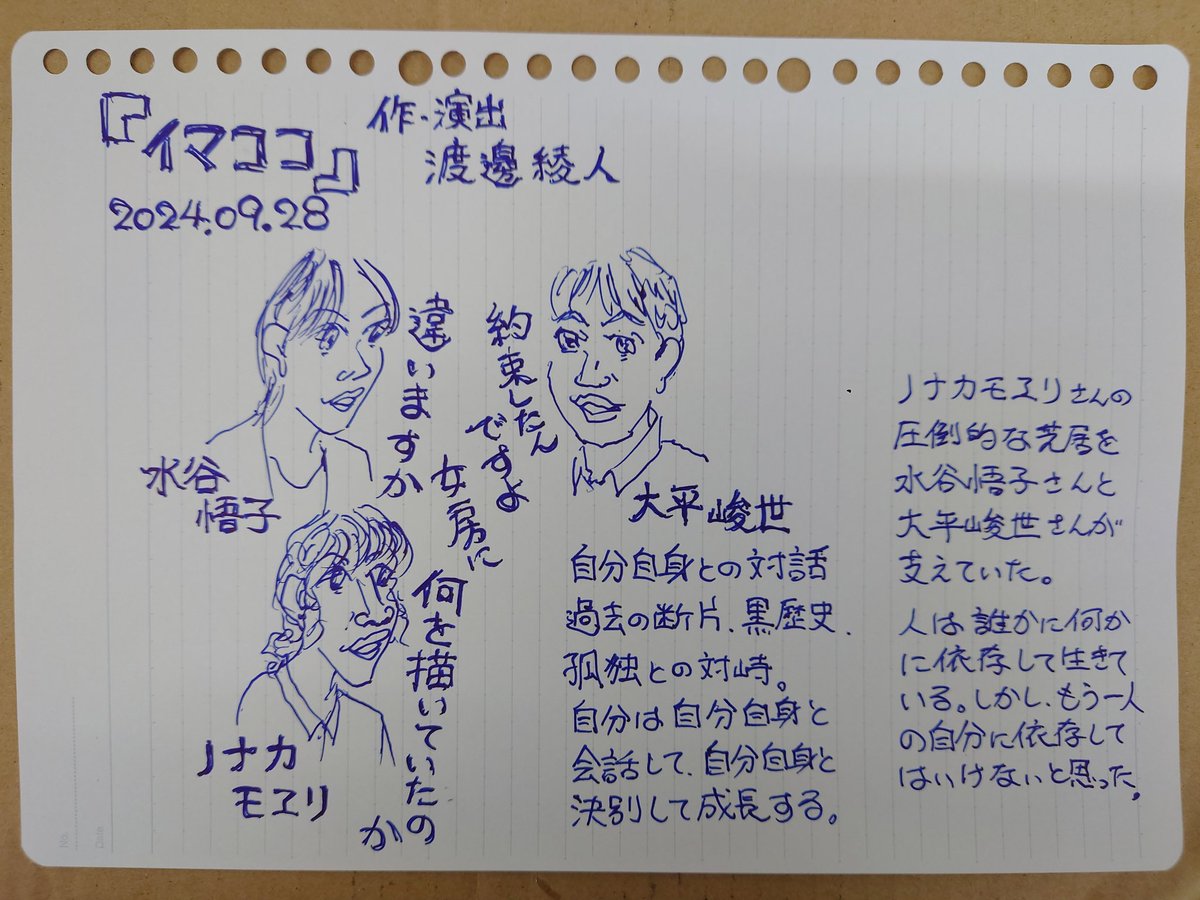 『イマココ』
作・演出
渡邊綾人
2024.09.28
違いますか
約束したん
ですよ
女房に
何を描いていたの
か
水谷
悟子
大平峻世
ノナカ
モヱリ
自分自身との対話
過去の断片、黒歴史、
孤独との対峙。
自分は自分自身と
会話して、自分自身と
決別して成長する。
ノナカモヱリさんの
圧倒的な芝居を
水谷悟子さんと
大平峻世さんが
支えていた。
人は誰かに何か
に依存して生きて
いる。しかし、もう一人
の自分に依存して
はいけないと思った。
No.
Date